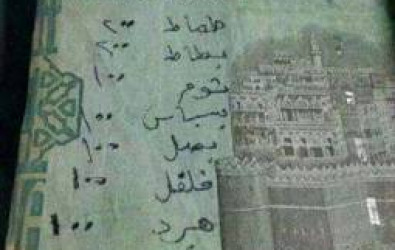 طماط ٢٠٠
بطاط ٢٠٠
ثوم ١٠٠
بسباس ١٠٠
بصل ١٠٠
فلفل ١٠٠
هرد ١٠٠